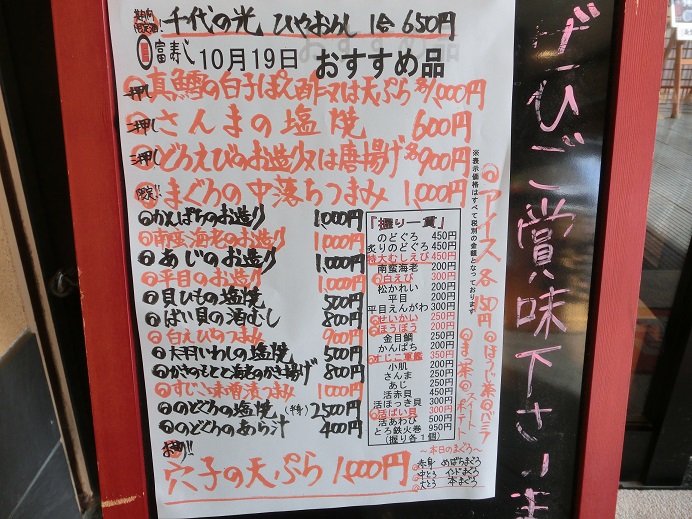 千代の光 ひやおろし 1合 650円
富寿し 10月19日 おすすめ品
一押し 真鱈の白子ぽん酢又は天ぷら各1,000円
二押し さんまの塩焼 600円
三押し どろえびのお造り又は唐揚げ各900円
限定!! まぐろの中落ちつまみ 1,000円
かんぱちのお造り 1,000円
南蛮海老のお造り 1,000円
あじのお造り 1,000円
平目のお造り 1,000円
貝ひもの塩焼 500円
ばい貝の酒むし 800円
白えびのつまみ 900円
大羽いわしの塩焼 500円
かきのもとと海老のかき揚げ 800円
すじこ味噌漬つまみ 1,000円
のどぐろの塩焼(半身) 2500円
のどぐろのあら汁 400円
穴子の天ぷら 1,000円
『握り一貫』
のどぐろ 450円
炙りのどぐろ 450円
特大むしえび 450円
南蛮海老 200円
白えび 300円
松かれい 200円
平目 200円
平目えんがわ 300円
せいかい 250円
ほうぼう 200円
金目鯛 250円
かんぱち 200円
すじこ軍艦 350円
小肌 200円
さんま 200円
あじ 200円
活赤貝 450円
活ほっき貝 300円
活ばい貝 300円
活あわび 500円
とろ鉄火巻 950円
(握り各1個)
~本日のまぐろ~
赤身 めばちまぐろ
中とろ インドまぐろ
大とろ 本まぐろ
※表示価格はすべて税別の金額となっております
アイス各150円
ほうじ茶 バニラ
まっ茶 スイートポテト
ぜひご賞味下さいま